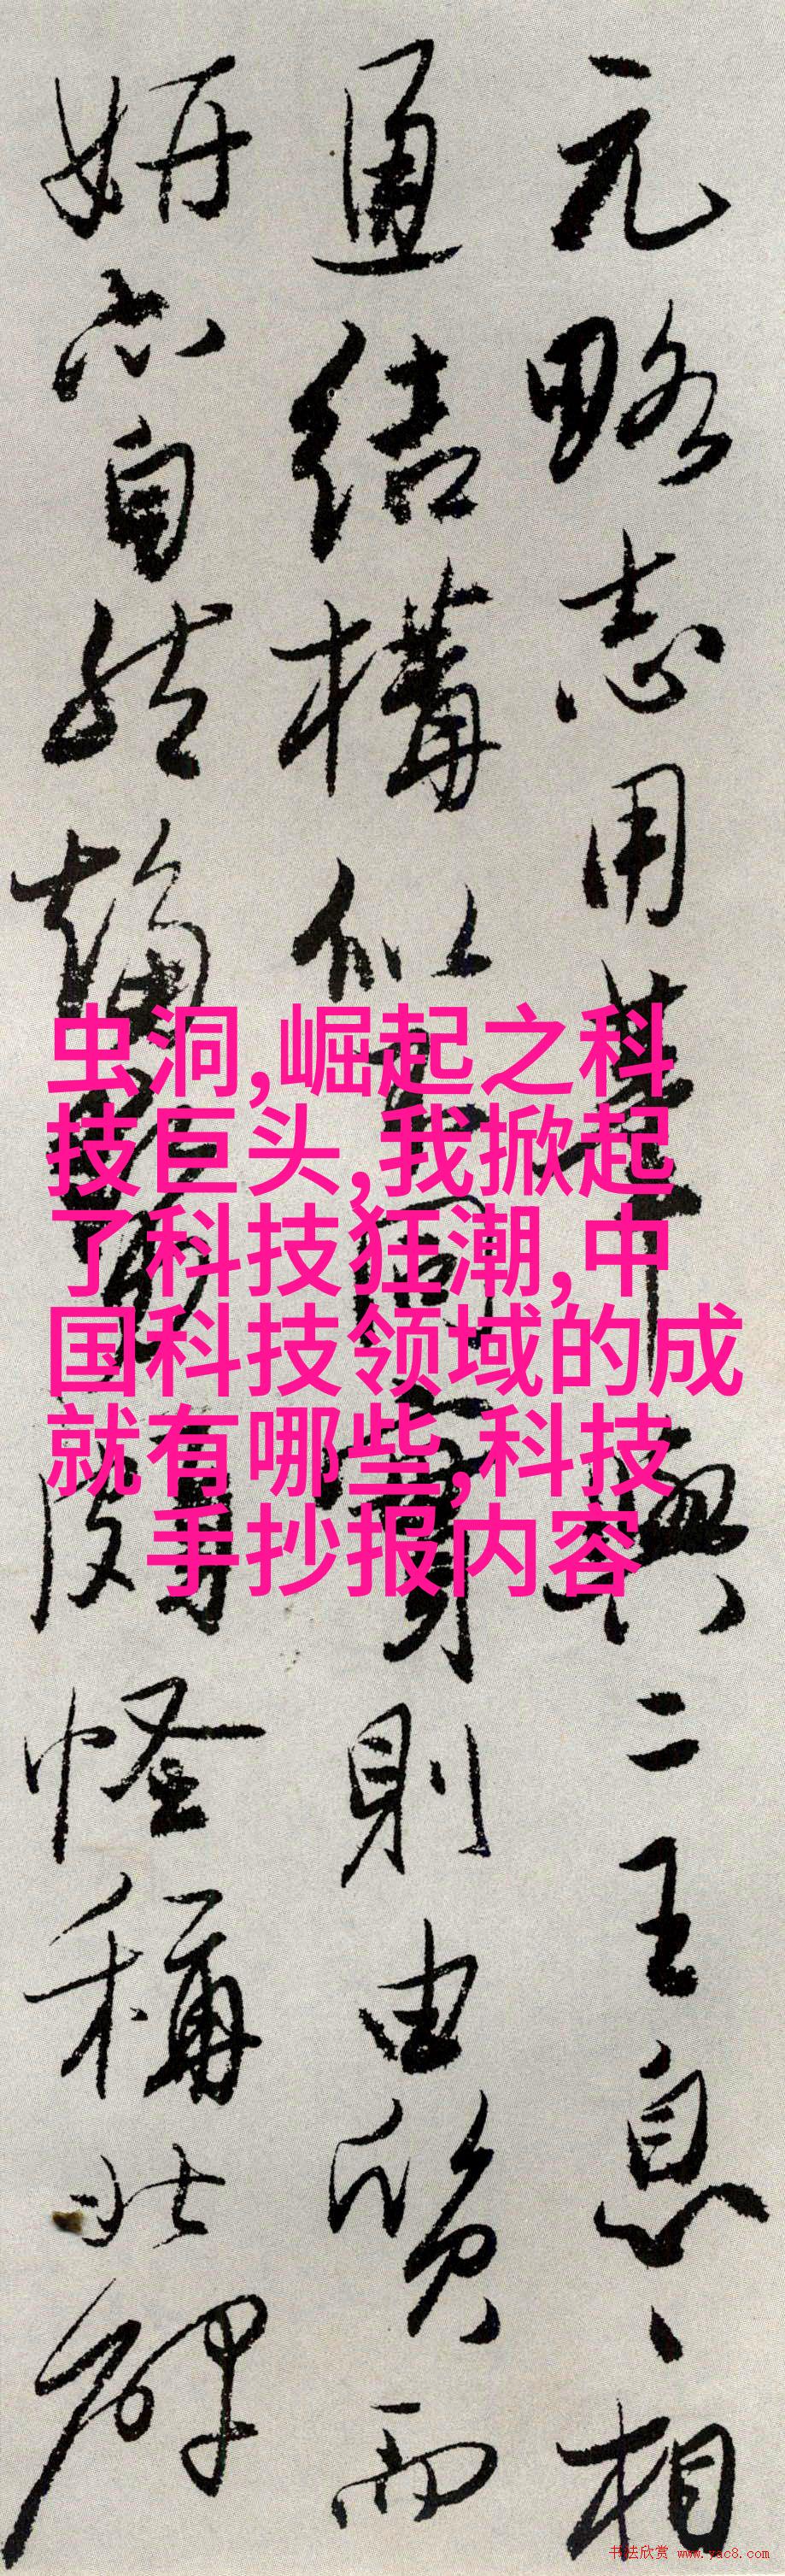 元略志用筆一與二王息、相
通结構似
則由质而
妍亦自然
怪稱北碑
虫洞,崛起之科
技巨头,我掀起
了科技狂潮,中
国科技领域的成
就有哪些,科技
手抄报内容
书法欣赏 www.yac8.com